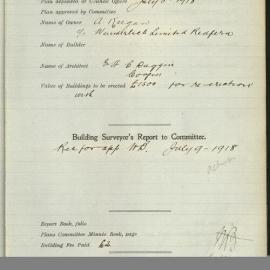 Plan deposited at Council Office July 8 - 1918
Plan approved by Committee
Name of Owner A Keegan
c/o Wunderlich Limited Redfern
Name of Builder
Name of Architect
Value of Buildings to be erected £1500 for re-erection
Building Surveyor's Report to Committee.
Rec for app July 9 - 1918
Report Book, folio
Plans Committee Minute Book, page
Building Fee Paid